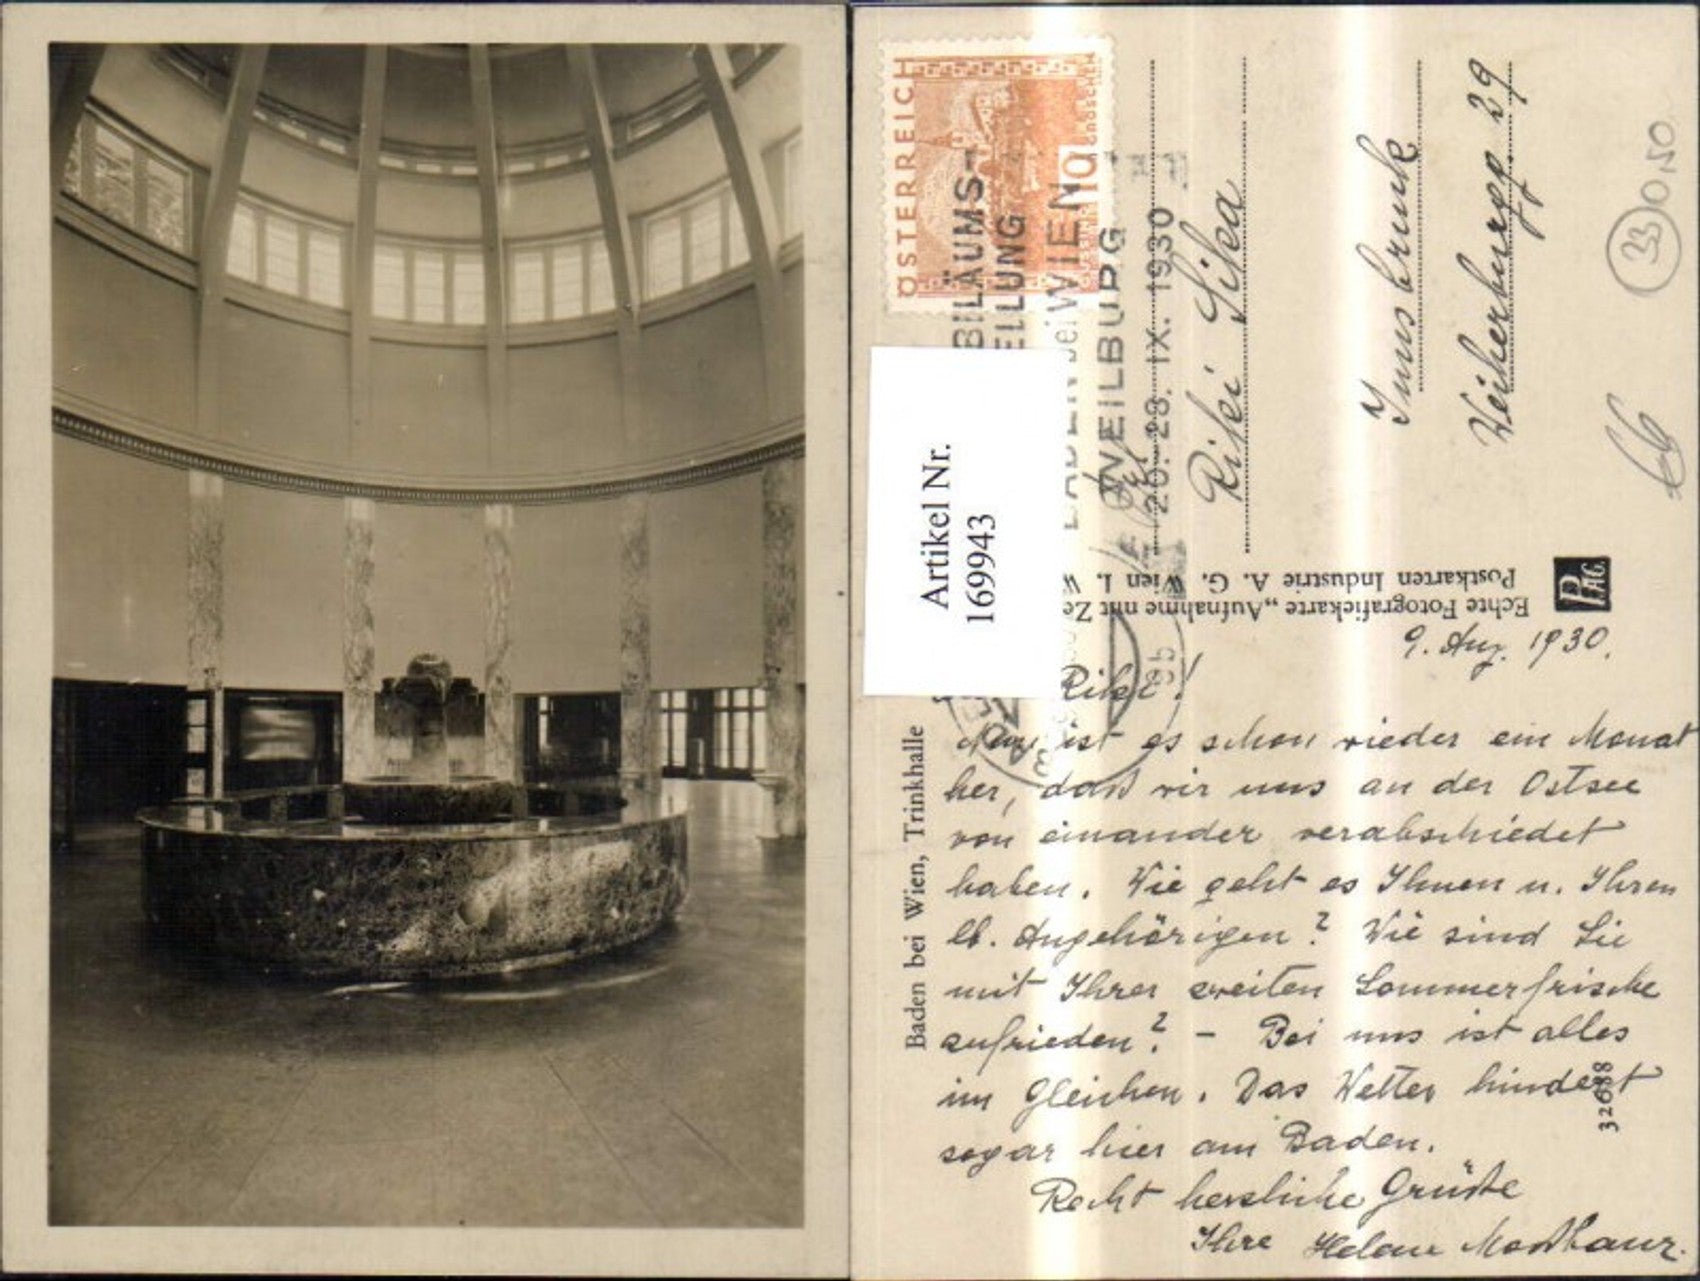 ÖSTERREICH
10
GROSCHEN
BILÄUMS-
ELLUNG
BADEN bei WIEN
WEILBURG
20.-28. IX. 1930
Artikel Nr.
169943
Riki Sika
Innsbruck
Weiherburgg. 29
33
0,50
Echte Fotografiekarte „Aufnahme mit Ze
Postkarten Industrie A. G. Wien I. W
PAG.
Baden bei Wien, Trinkhalle
32688
9. Aug. 1930.
Riki!
Nun ist es schon wieder ein Monat
her, daß wir uns an der Ostsee
von einander verabschiedet
haben. Wie geht es Ihnen u. Ihren
lb. Angehörigen? Wie sind Sie
mit Ihrer zweiten Sommerfrische
zufrieden? - Bei uns ist alles
im Gleichen. Das Wetter hindert
sogar hier am Baden.
Recht herzliche Grüße
Ihre Helene